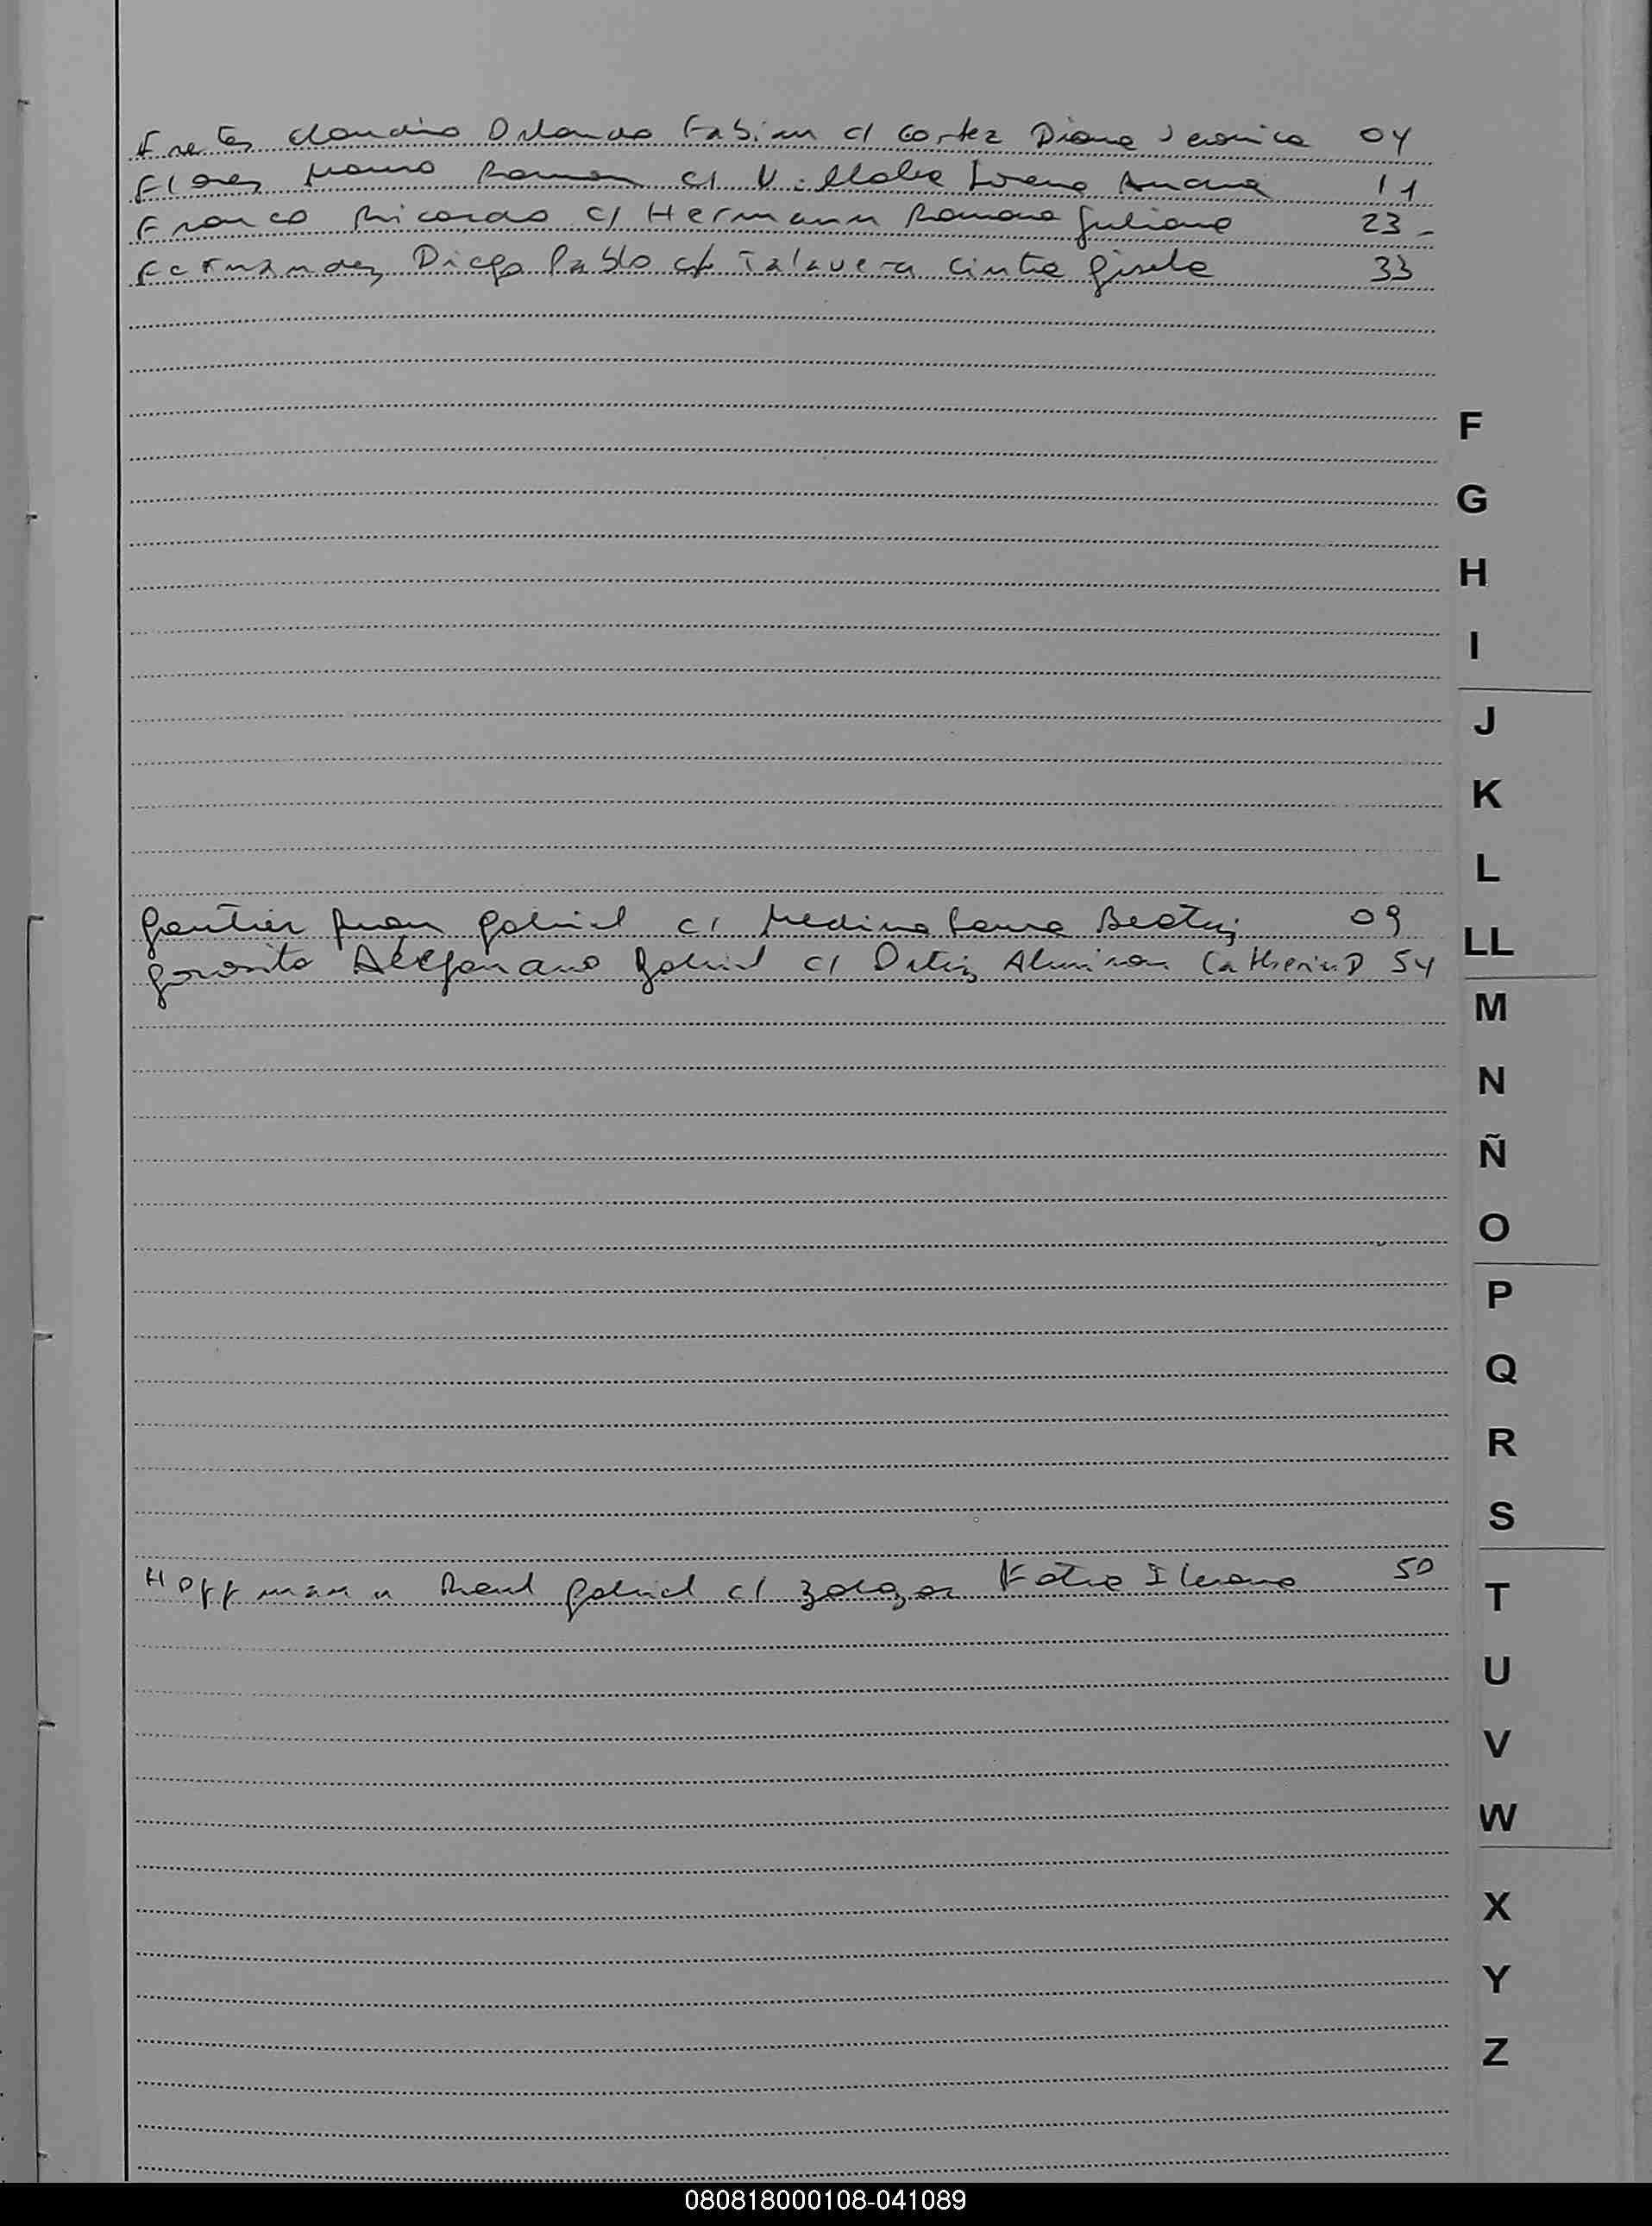 Fretes Claudio Orlando Fabian c/ Cortez Diana Veronica 04
Flores Mauro Ramon c/ Villalba Lorena Analia 11
Franco Ricardo c/ Hermann Romona Juliana 23 -
Fernandez Diego Pablo c/ Talavera Cintia Gisela 33
F
G
H
I
J
K
L
Gautier Juan Gabriel c/ Medina Laura Beatriz 09
LL
Gorosito Alejandro Gabriel c/ Ortiz Almiron Catherin D 54
M
N
Ñ
O
P
Q
R
S
Hoffmann Raul Gabriel c/ Zalazar Katia Ileana 50
T
U
V
W
X
Y
Z
080818000108-041089